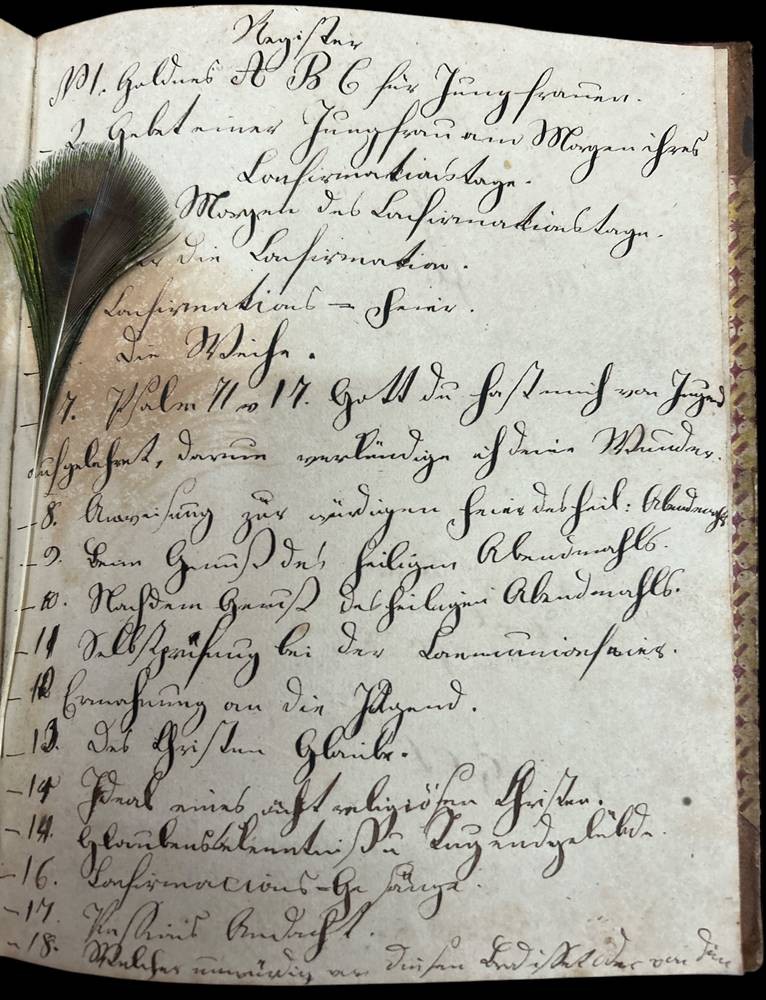 Register
N 1. Goldnes A B C für Jungfrauen.
2. Gebet einer Jungfrau am Morgen ihres
Confirmationstage.
Morgen des Confirmationstage.
die Confirmation.
Confirmations = Feier.
Die Weihe.
7. Psalm 71 v 17. Gott du hast mich von Jugend
aufgelehret, darum verkündige ich deine Wunder.
– 8. Anweisung zur würdigen Feier des heil: Abendmahls
– 9. Beim Genuß des heiligen Abendmahls.
– 10. Nach dem Genuß des heiligen Abendmahls.
– 11 Selbstprüfung bei der Communionfeier.
– 12 Ermahnung an die Jugend.
– 13. Des Christen Glaube.
– 14 Ideal eines ächt religiösen Christen.
– 14. Glaubensbekenntniß u Tugendgelübde.
– 16. Confirmations-Gesänge.
– 17. Passions Andacht.
– 18. Welcher unwürdig von diesem Brod isset oder von dem